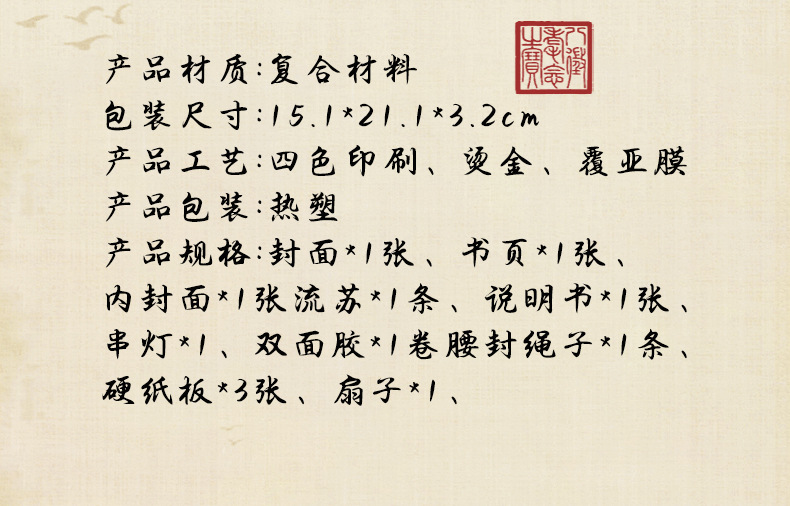 产品材质:复合材料
包装尺寸:15.1*21.1*3.2cm
产品工艺:四色印刷、烫金、覆亚膜
产品包装:热塑
产品规格:封面*1张、书页*1张、
内封面*1张流苏*1条、说明书*1张、
串灯*1、双面胶*1卷腰封绳子*1条、
硬纸板*3张、扇子*1、